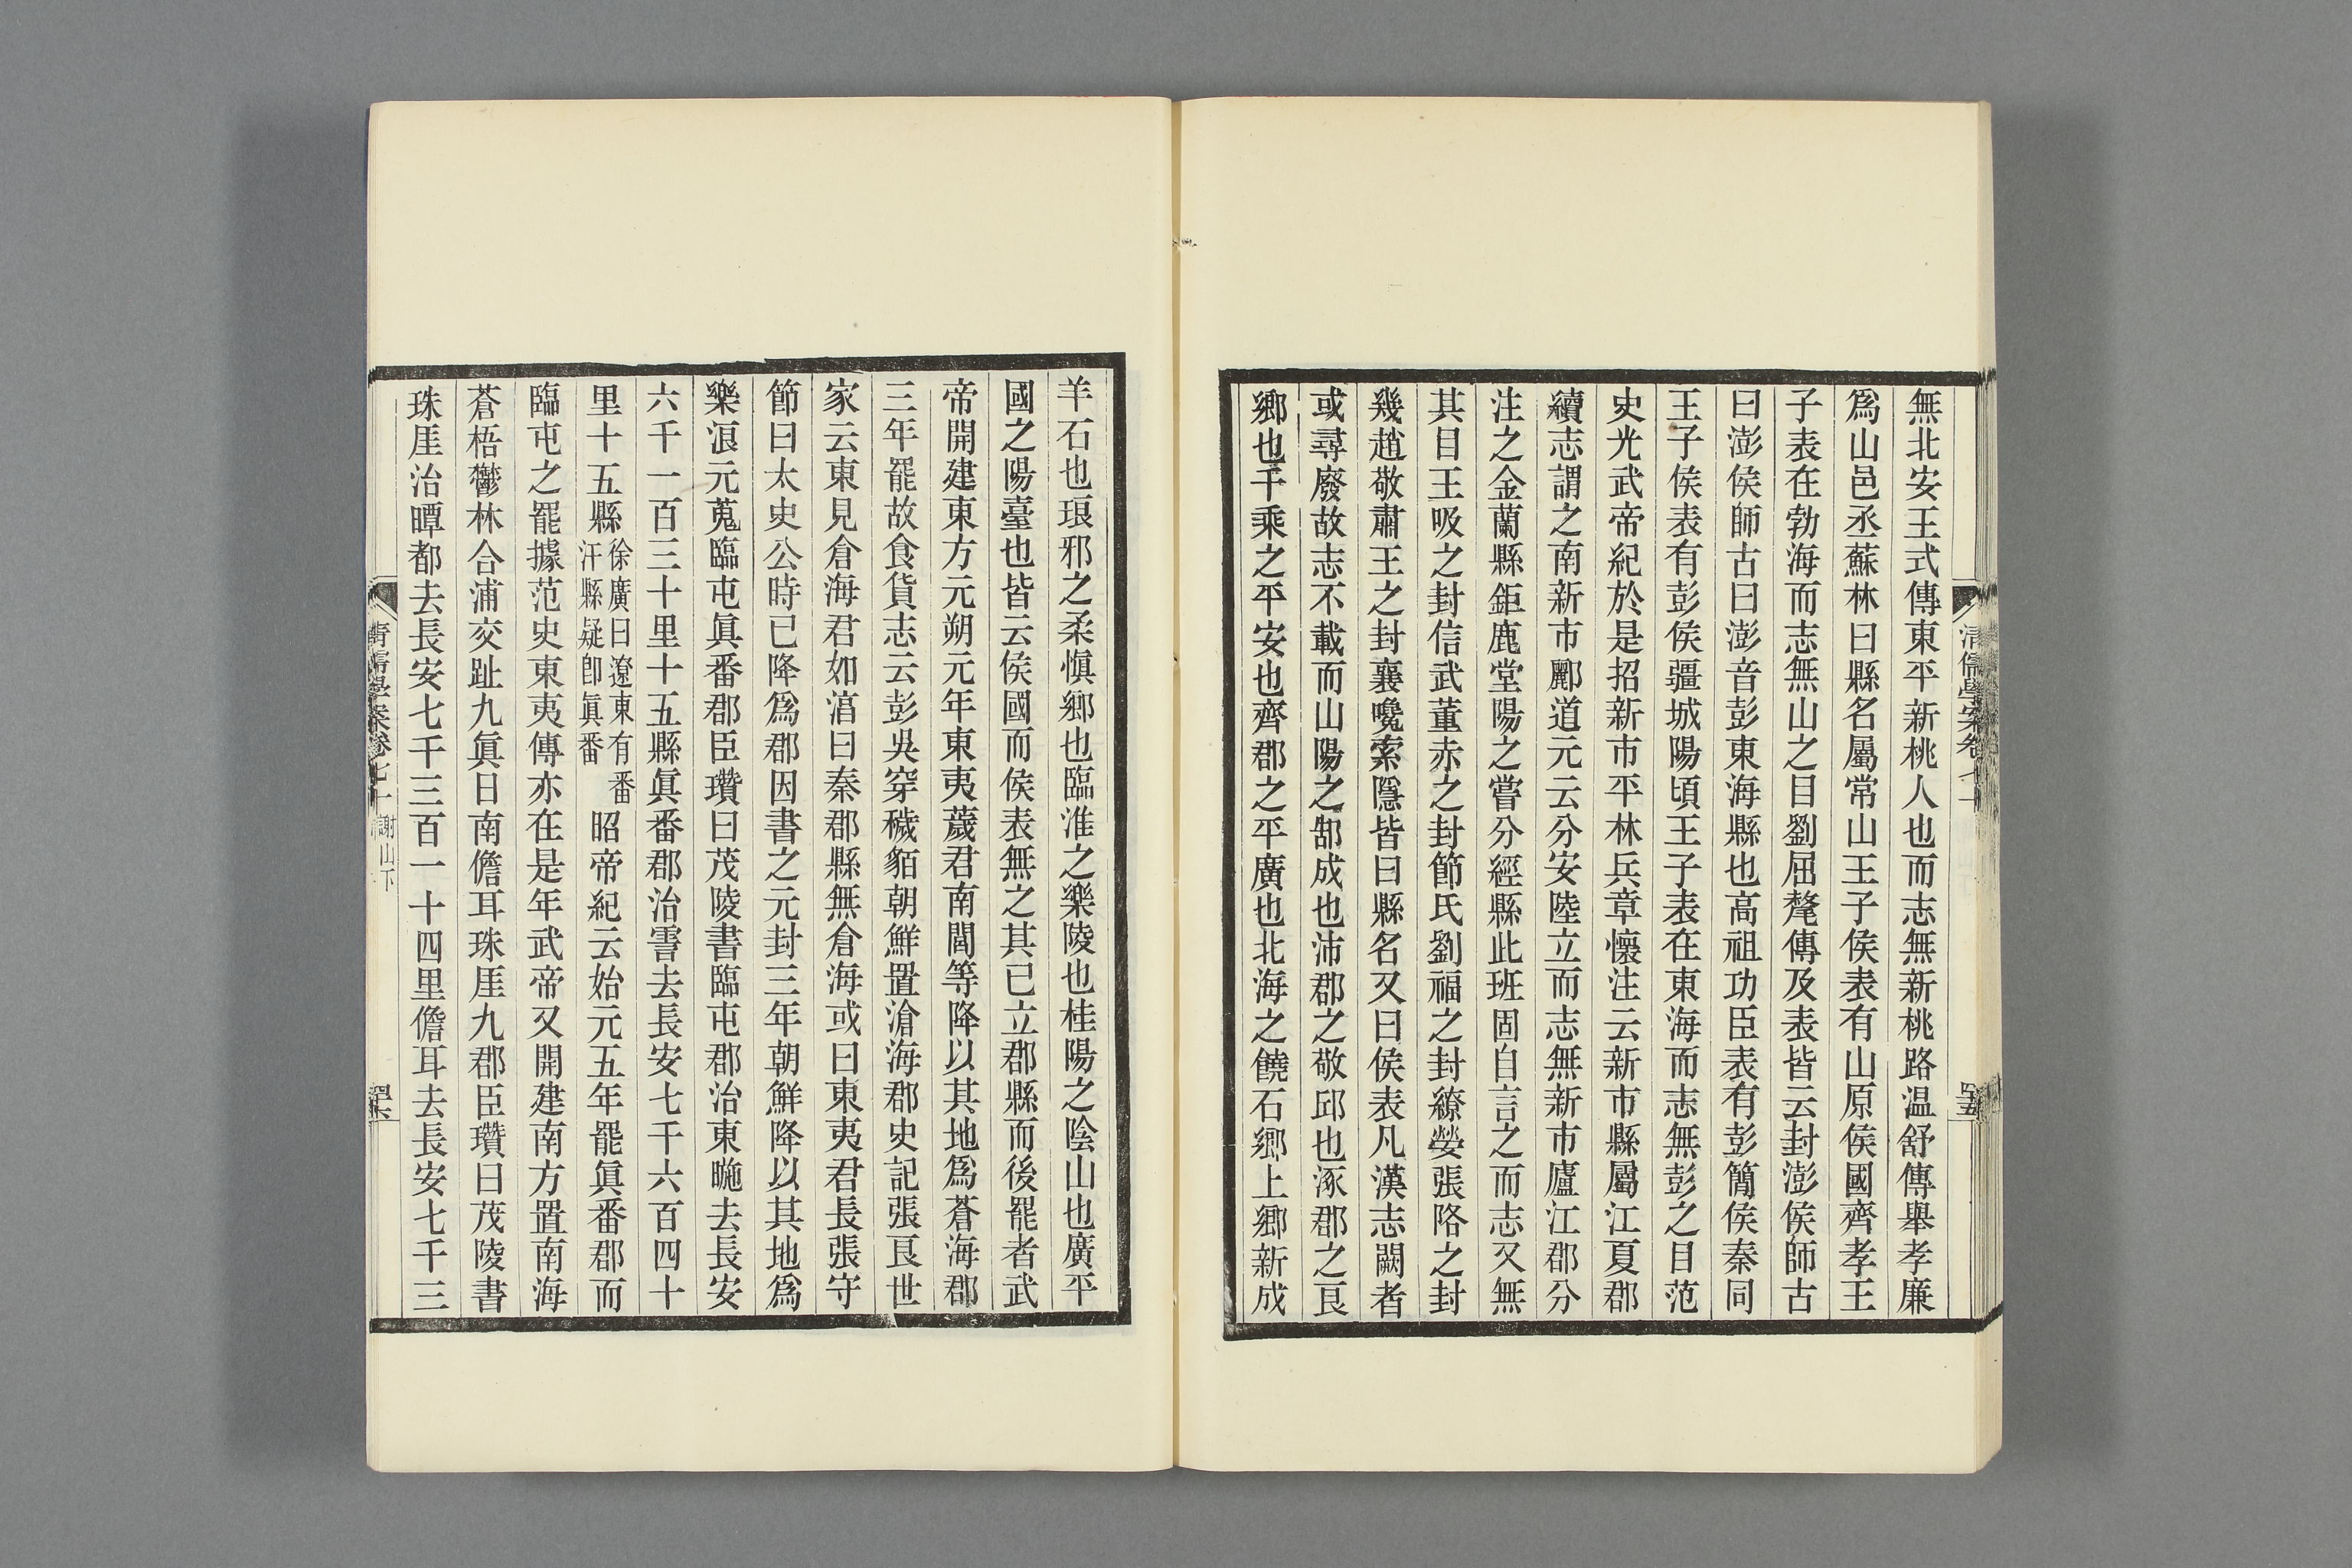 無北安王式傳東平新桃人也而志無新桃路温舒傳舉孝廉
爲山邑丞蘇林曰縣名屬常山王子侯表有山原侯國齊孝王
子表在勃海而志無山之目劉屈氂傳及表皆云封澎侯師古
曰澎侯師古曰澎音彭東海縣也高祖功臣表有彭簡侯秦同
王子侯表有彭侯疆城陽頃王子表在東海而志無彭之目范
史光武帝紀於是招新市平林兵章懷注云新市縣屬江夏郡
續志謂之南新市酈道元云分安陸立而志無新市廬江郡分
注之金蘭縣鉅鹿堂陽之嘗分經縣此班固自言之而志又無
其目王吸之封信武董赤之封節氏劉福之封繚嫈張陊之封
幾趙敬肅王之封襄嚵索隱皆曰縣名又曰侯表凡漢志闕者
或尋廢故志不載而山陽之郜成也沛郡之敬邱也涿郡之良
鄉也千乘之平安也齊郡之平廣也北海之饒石鄉上鄉新成
清儒學案卷七十一
四十五
羊石也琅邪之柔愼鄉也臨淮之樂陵也桂陽之陰山也廣平
國之陽臺也皆云侯國而侯表無之其已立郡縣而後罷者武
帝開建東方元朔元年東夷薉君南閭等降以其地爲蒼海郡
三年罷故食貨志云彭吳穿穢貊朝鮮置滄海郡史記張良世
家云東見倉海君如湻曰秦郡縣無倉海或曰東夷君長張守
節曰太史公時已降爲郡因書之元封三年朝鮮降以其地爲
樂浪元菟臨屯眞番郡臣瓚曰茂陵書臨屯郡治東暆去長安
六千一百三十里十五縣眞番郡治霅去長安七千六百四十
里十五縣徐廣曰遼東有番汗縣疑卽眞番昭帝紀云始元五年罷眞番郡而
臨屯之罷據范史東夷傳亦在是年武帝又開建南方置南海
蒼梧鬱林合浦交趾九眞日南儋耳珠厓九郡臣瓚曰茂陵書
珠厓治瞫都去長安七千三百一十四里儋耳去長安七千三
清儒學案卷七十一 謝山下
四十六